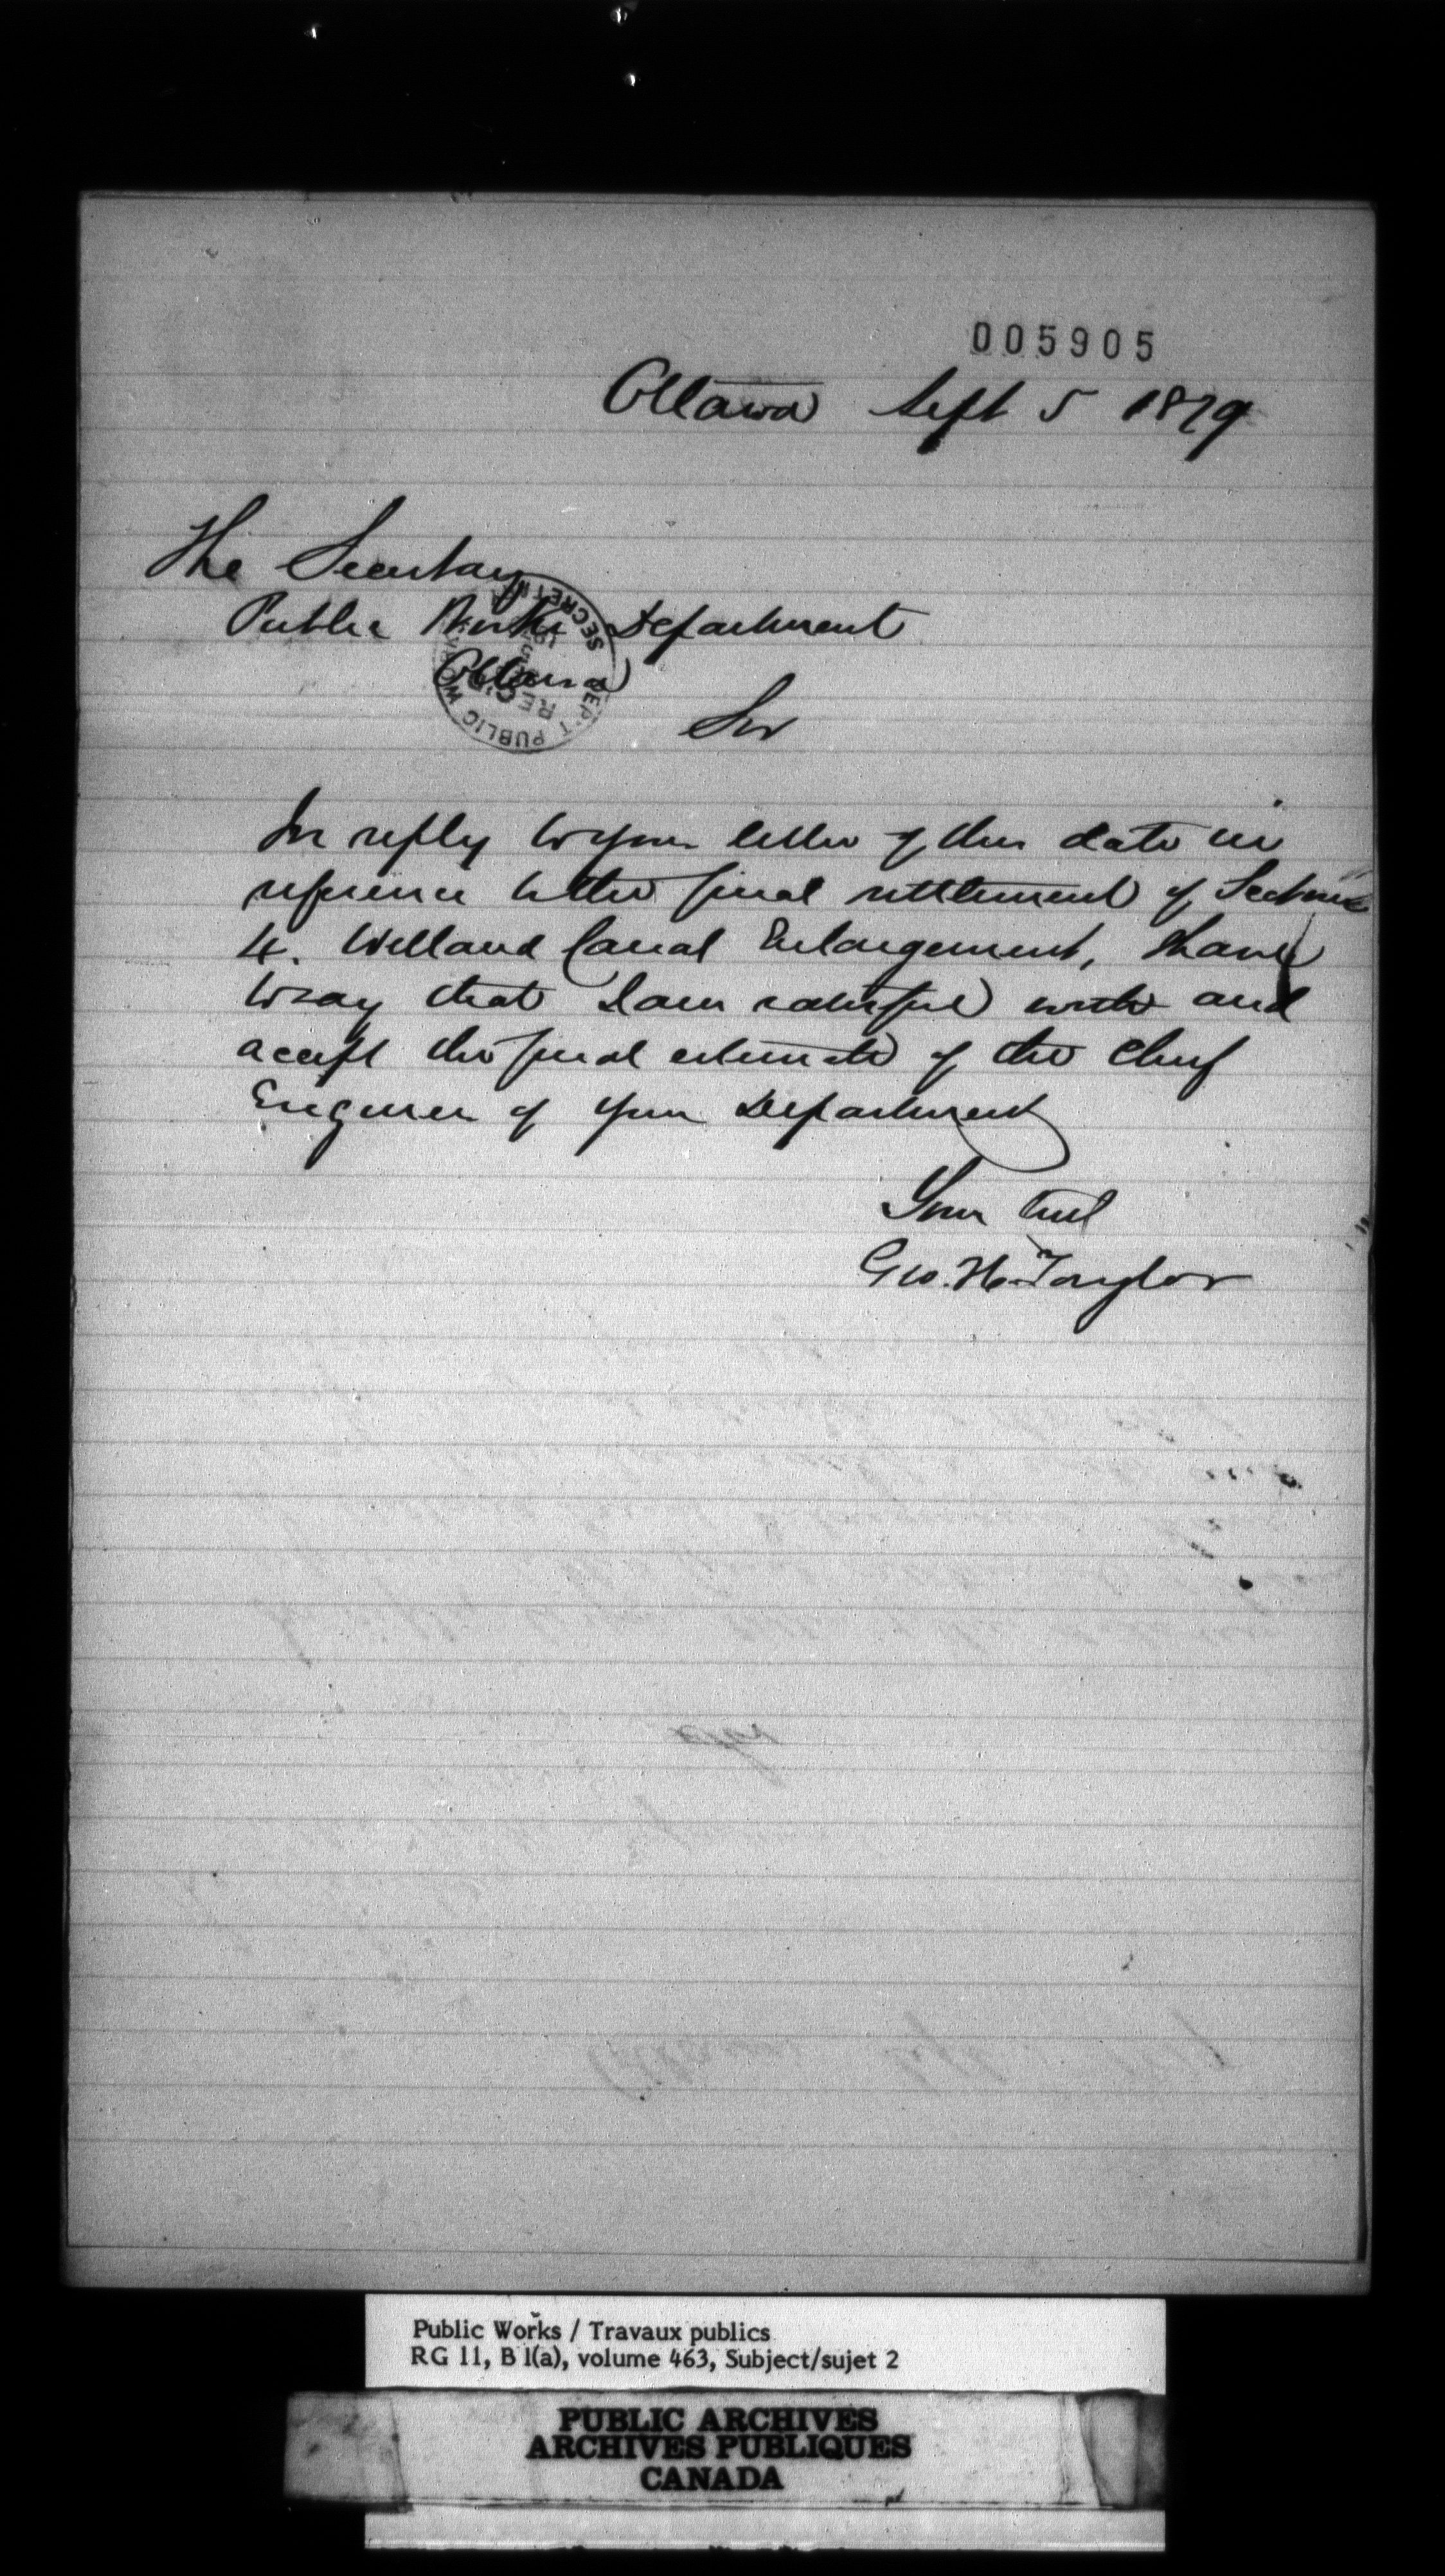 005905
Ottawa Sept 5 1879
The Secretary
Public Works Department
Ottawa
SECRETARY
DEP'T PUBLIC WORKS
REC'D
Sir
In reply to your letter of this date in
reference to the final settlement of Section
4. Welland Canal Enlargement, I have
to say that I am satisfied with and
accept the final estimate of the Chief
Engineer of your Department
Your truly
Geo. H. Taylor
Public Works / Travaux publics
RG 11, B 1(a), volume 463, Subject/sujet 2
PUBLIC ARCHIVES
ARCHIVES PUBLIQUES
CANADA